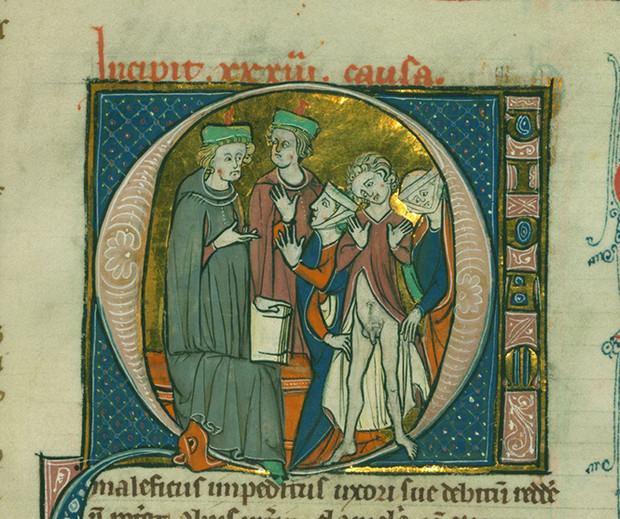 Incipit. xxxiii. causa.
U
I
D
A
M
maleficus impeditus uxori sue debitũ redde